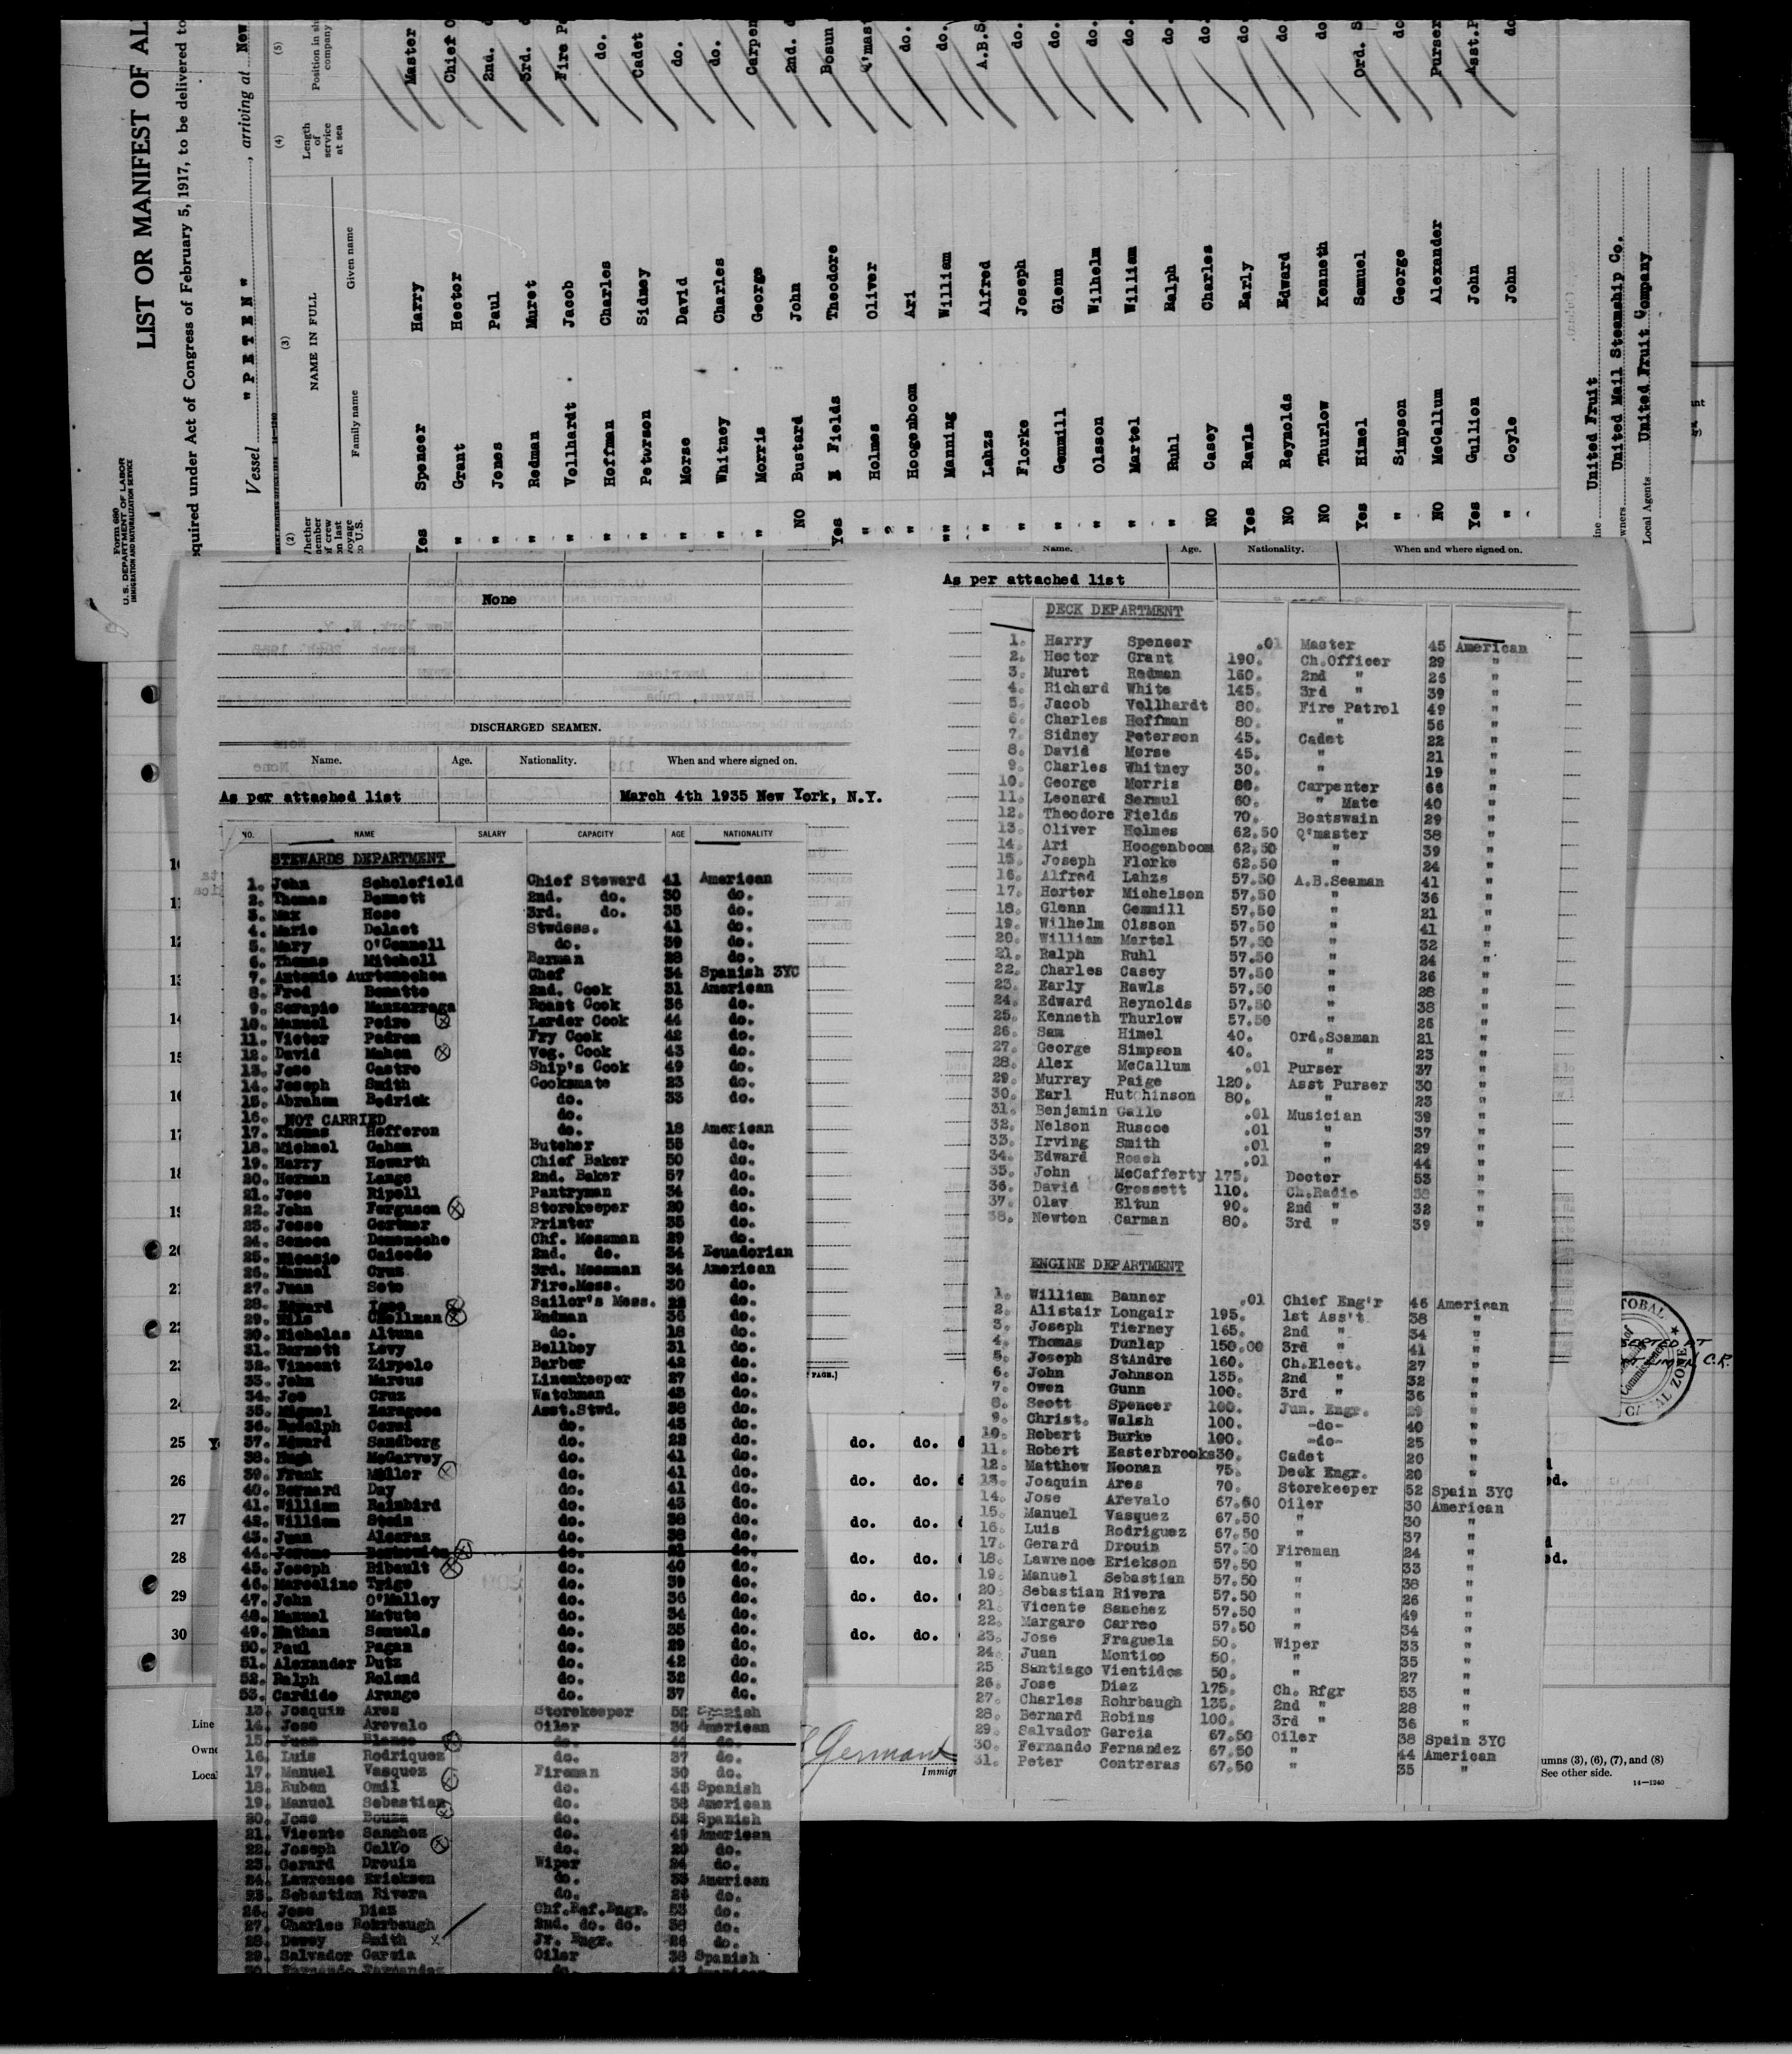 Form 680
U. S. DEPARTMENT OF LABOR
IMMIGRATION AND NATURALIZATION SERVICE
LIST OR MANIFEST OF AL
equired under Act of Congress of February 5, 1917, to be delivered to
Vessel "PETEN", arriving at New
(2) (3) (4) (5)
Whether member of crew on last voyage to U.S. NAME IN FULL Length of service at sea Position in ship company
Family name Given name
Yes Spencer Harry Master
" Grant Hector Chief O
" Jones Paul 2nd.
" Redman Muret 3rd.
" Vollhardt Jacob Fire P
" Hoffman Charles do.
" Peterson Sidney Cadet
" Morse David do.
" Whitney Charles do.
" Morris George Carpen
NO Bustard John 2nd.
Yes Fields Theodore Bosun
" Holmes Oliver Q'mas
" Hoogenboom Ari do.
" Manning William do.
" Lahzs Alfred A.B.S
" Florke Joseph do.
" Gemmill Glenn do.
" Olsson Wilhelm do.
" Martel William do.
" Ruhl Ralph do.
NO Casey Charles do.
Yes Rawls Early do.
NO Reynolds Edward do.
NO Thurlow Kenneth do
Yes Himel Samuel Ord. S
" Simpson George do
NO McCallum Alexander Purser
Yes Gullion John Asst.P
" Coyle John do
ine United Fruit
wners United Mail Steamship Co.
Local Agents United Fruit Company
None
DISCHARGED SEAMEN.
Name. Age. Nationality. When and where signed on.
As per attached list March 4th 1935 New York, N.Y.
NO. NAME SALARY CAPACITY AGE NATIONALITY
STEWARDS DEPARTMENT
1. John Scholefield Chief Steward 41 American
2. Thomas Bennett 2nd. do. 30 do.
3. Max Hese 3rd. do. 35 do.
4. Marie Delaet Stwdess. 41 do.
5. Mary O'Connell do. 39 do.
6. Thomas Mitchell Barman 28 do.
7. Antonio Aurtenechea Chef 34 Spanish 3YC
8. Fred Bonatto 2nd. Cook 31 American
9. Serapio Manzarraga Roast Cook 36 do.
10. Manuel Peiro Larder Cook 44 do.
11. Victor Padron Fry Cook 42 do.
12. David Mahon Veg. Cook 43 do.
13. Jose Castro Ship's Cook 49 do.
14. Joseph Smith Cooksmate 23 do.
15. Abraham Bedrick do. 33 do.
16. NOT CARRIED do.
17. Thomas Hefferon do. 18 American
18. Michael Gahan Butcher 55 do.
19. Harry Howarth Chief Baker 50 do.
20. Herman Lange 2nd. Baker 57 do.
21. Jose Ripoll Pantryman 34 do.
22. John Ferguson Storekeeper 20 do.
23. Jesse Gertner Printer 35 do.
24. Seneca Domeneche Chf. Messman 29 do.
25. Nicasio Caicedo 2nd. do. 34 Ecuadorian
26. Manuel Cruz 3rd. Messman 34 American
27. Juan Soto Fire.Mess. 30 do.
28. Edward Sailor's Mess. do.
29. Nils Chellman Endman 36 do.
30. Nicholas Altuna do. 18 do.
31. Barnett Levy Bellboy 31 do.
32. Vincent Zirpolo Barber 42 do.
33. John Marcus Linenkeeper 27 do.
34. Joe Cruz Watchman 43 do.
35. Miguel Zaragosa Asst.Stwd. 38 do.
36. Rudolph Corsi do. 43 do.
37. Edward Sandberg do. 22 do.
38. Hugh McGarvey do. 41 do.
39. Frank Miller do. 41 do.
40. Bernard Day do. 41 do.
41. William Rainbird do. 43 do.
42. William Stein do. 38 do.
43. Juan Alcaraz do. 38 do.
44. Jerome do. do.
45. Joseph Bibault do. 40 do.
46. Marcelino Trigo do. 39 do.
47. John O'Malley do. 36 do.
48. Manuel Matute do. 34 do.
49. Nathan Samuels do. 35 do.
50. Paul Pagan do. 29 do.
51. Alexander Dutz do. 42 do.
52. Ralph Roland do. 32 do.
53. Cardido Arango do. 37 do.
13. Joaquin Ares Storekeeper 52 Spanish
14. Jose Arevalo Oiler 30 American
15. Juan Blanco do. 44 do.
16. Luis Rodriquez do. 37 do.
17. Manuel Vasquez Fireman 30 do.
18. Ruben Omil do. 45 Spanish
19. Manuel Sebastian do. 38 American
20. Jose Bouza do. 52 Spanish
21. Vicente Sanchez do. 49 American
22. Joseph Calvo do. 20 do.
23. Gerard Drouin Wiper 24 do.
24. Lawrence Ericksen do. 33 American
25. Sebastian Rivera do. 26 do.
26. Jose Diaz Chf.Ref.Engr. 53 do.
27. Charles Rohrbaugh 2nd. do. do. 38 do.
28. Dewey Smith Jr. Engr. 26 do.
29. Salvador Garcia Oiler 38 Spanish
30. Fernando Fernandez do.
Name. Age. Nationality. When and where signed on.
As per attached list
DECK DEPARTMENT
1. Harry Spencer .01 Master 45 American
2. Hector Grant 190. Ch.Officer 29 "
3. Muret Redman 160. 2nd " 26 "
4. Richard White 145. 3rd " 39 "
5. Jacob Vollhardt 80. Fire Patrol 49 "
6. Charles Hoffman 80. " 56 "
7. Sidney Peterson 45. Cadet 22 "
8. David Morse 45. " 21 "
9. Charles Whitney 30. " 19 "
10. George Morris 80. Carpenter 66 "
11. Leonard Sermul 60. " Mate 40 "
12. Theodore Fields 70. Boatswain 29 "
13. Oliver Holmes 62.50 Q'master 38 "
14. Ari Hoogenboom 62.50 " 39 "
15. Joseph Florke 62.50 " 24 "
16. Alfred Lahzs 57.50 A.B.Seaman 41 "
17. Horter Michelson 57.50 " 36 "
18. Glenn Gemmill 57.50 " 21 "
19. Wilhelm Olsson 57.50 " 41 "
20. William Martel 57.50 " 32 "
21. Ralph Ruhl 57.50 " 24 "
22. Charles Casey 57.50 " 26 "
23. Early Rawls 57.50 " 28 "
24. Edward Reynolds 57.50 " 38 "
25. Kenneth Thurlow 57.50 " 26 "
26. Sam Himel 40. Ord.Seaman 21 "
27. George Simpson 40. " 23 "
28. Alex McCallum .01 Purser 37 "
29. Murray Paige 120. Asst Purser 30 "
30. Earl Hutchinson 80. " 23 "
31. Benjamin Galle .01 Musician 39 "
32. Nelson Ruscoe .01 " 37 "
33. Irving Smith .01 " 29 "
34. Edward Roach .01 " 44 "
35. John McCafferty 175. Doctor 53 "
36. David Grossett 110. Ch.Radio 38 "
37. Olav Eltun 90. 2nd " 32 "
38. Newton Carman 80. 3rd " 39 "
ENGINE DEPARTMENT
1. William Banner .01 Chief Eng'r 46 American
2. Alistair Longair 195. 1st Ass't 38 "
3. Joseph Tierney 165. 2nd " 34 "
4. Thomas Dunlap 150.00 3rd " 41 "
5. Joseph StAndre 160. Ch.Elect. 27 "
6. John Johnson 135. 2nd " 32 "
7. Owen Gunn 100. 3rd " 36 "
8. Scott Spencer 100. Jun. Engr. 29 "
9. Christ. Walsh 100. -do- 40 "
10. Robert Burke 100. -do- 25 "
11. Robert Easterbrooks 30. Cadet 20 "
12. Matthew Noonan 75. Deck Engr. 20 "
13. Joaquin Ares 70. Storekeeper 52 Spain 3YC
14. Jose Arevalo 67.50 Oiler 30 American
15. Manuel Vasquez 67.50 " 30 "
16. Luis Rodriguez 67.50 " 37 "
17. Gerard Drouin 57.50 Fireman 24 "
18. Lawrence Erickson 57.50 " 33 "
19. Manuel Sebastian 57.50 " 38 "
20. Sebastian Rivera 57.50 " 26 "
21. Vicente Sanchez 57.50 " 49 "
22. Margaro Carreo 57.50 " 34 "
23. Jose Fraguela 50. Wiper 33 "
24. Juan Montico 50. " 35 "
25 Santiago Vientidos 50. " 27 "
26. Jose Diaz 175. Ch. Rfgr 53 "
27. Charles Rohrbaugh 135. 2nd " 28 "
28. Bernard Robins 100. 3rd " 36 "
29. Salvador Garcia 67.50 Oiler 38 Spain 3YC
30. Fernando Fernandez 67.50 " 44 American
31. Peter Contreras 67.50 " 35 "
25 do. do.
26 do. do. ed.
27 do. do.
28 do. do. ed.
29 do. do.
30 do. do.
Line
Owne
Local
Germant
Immigr
umns (3), (6), (7), and (8)
See other side.
14—1240
PAGE.]
TOBAL
CANAL ZONE